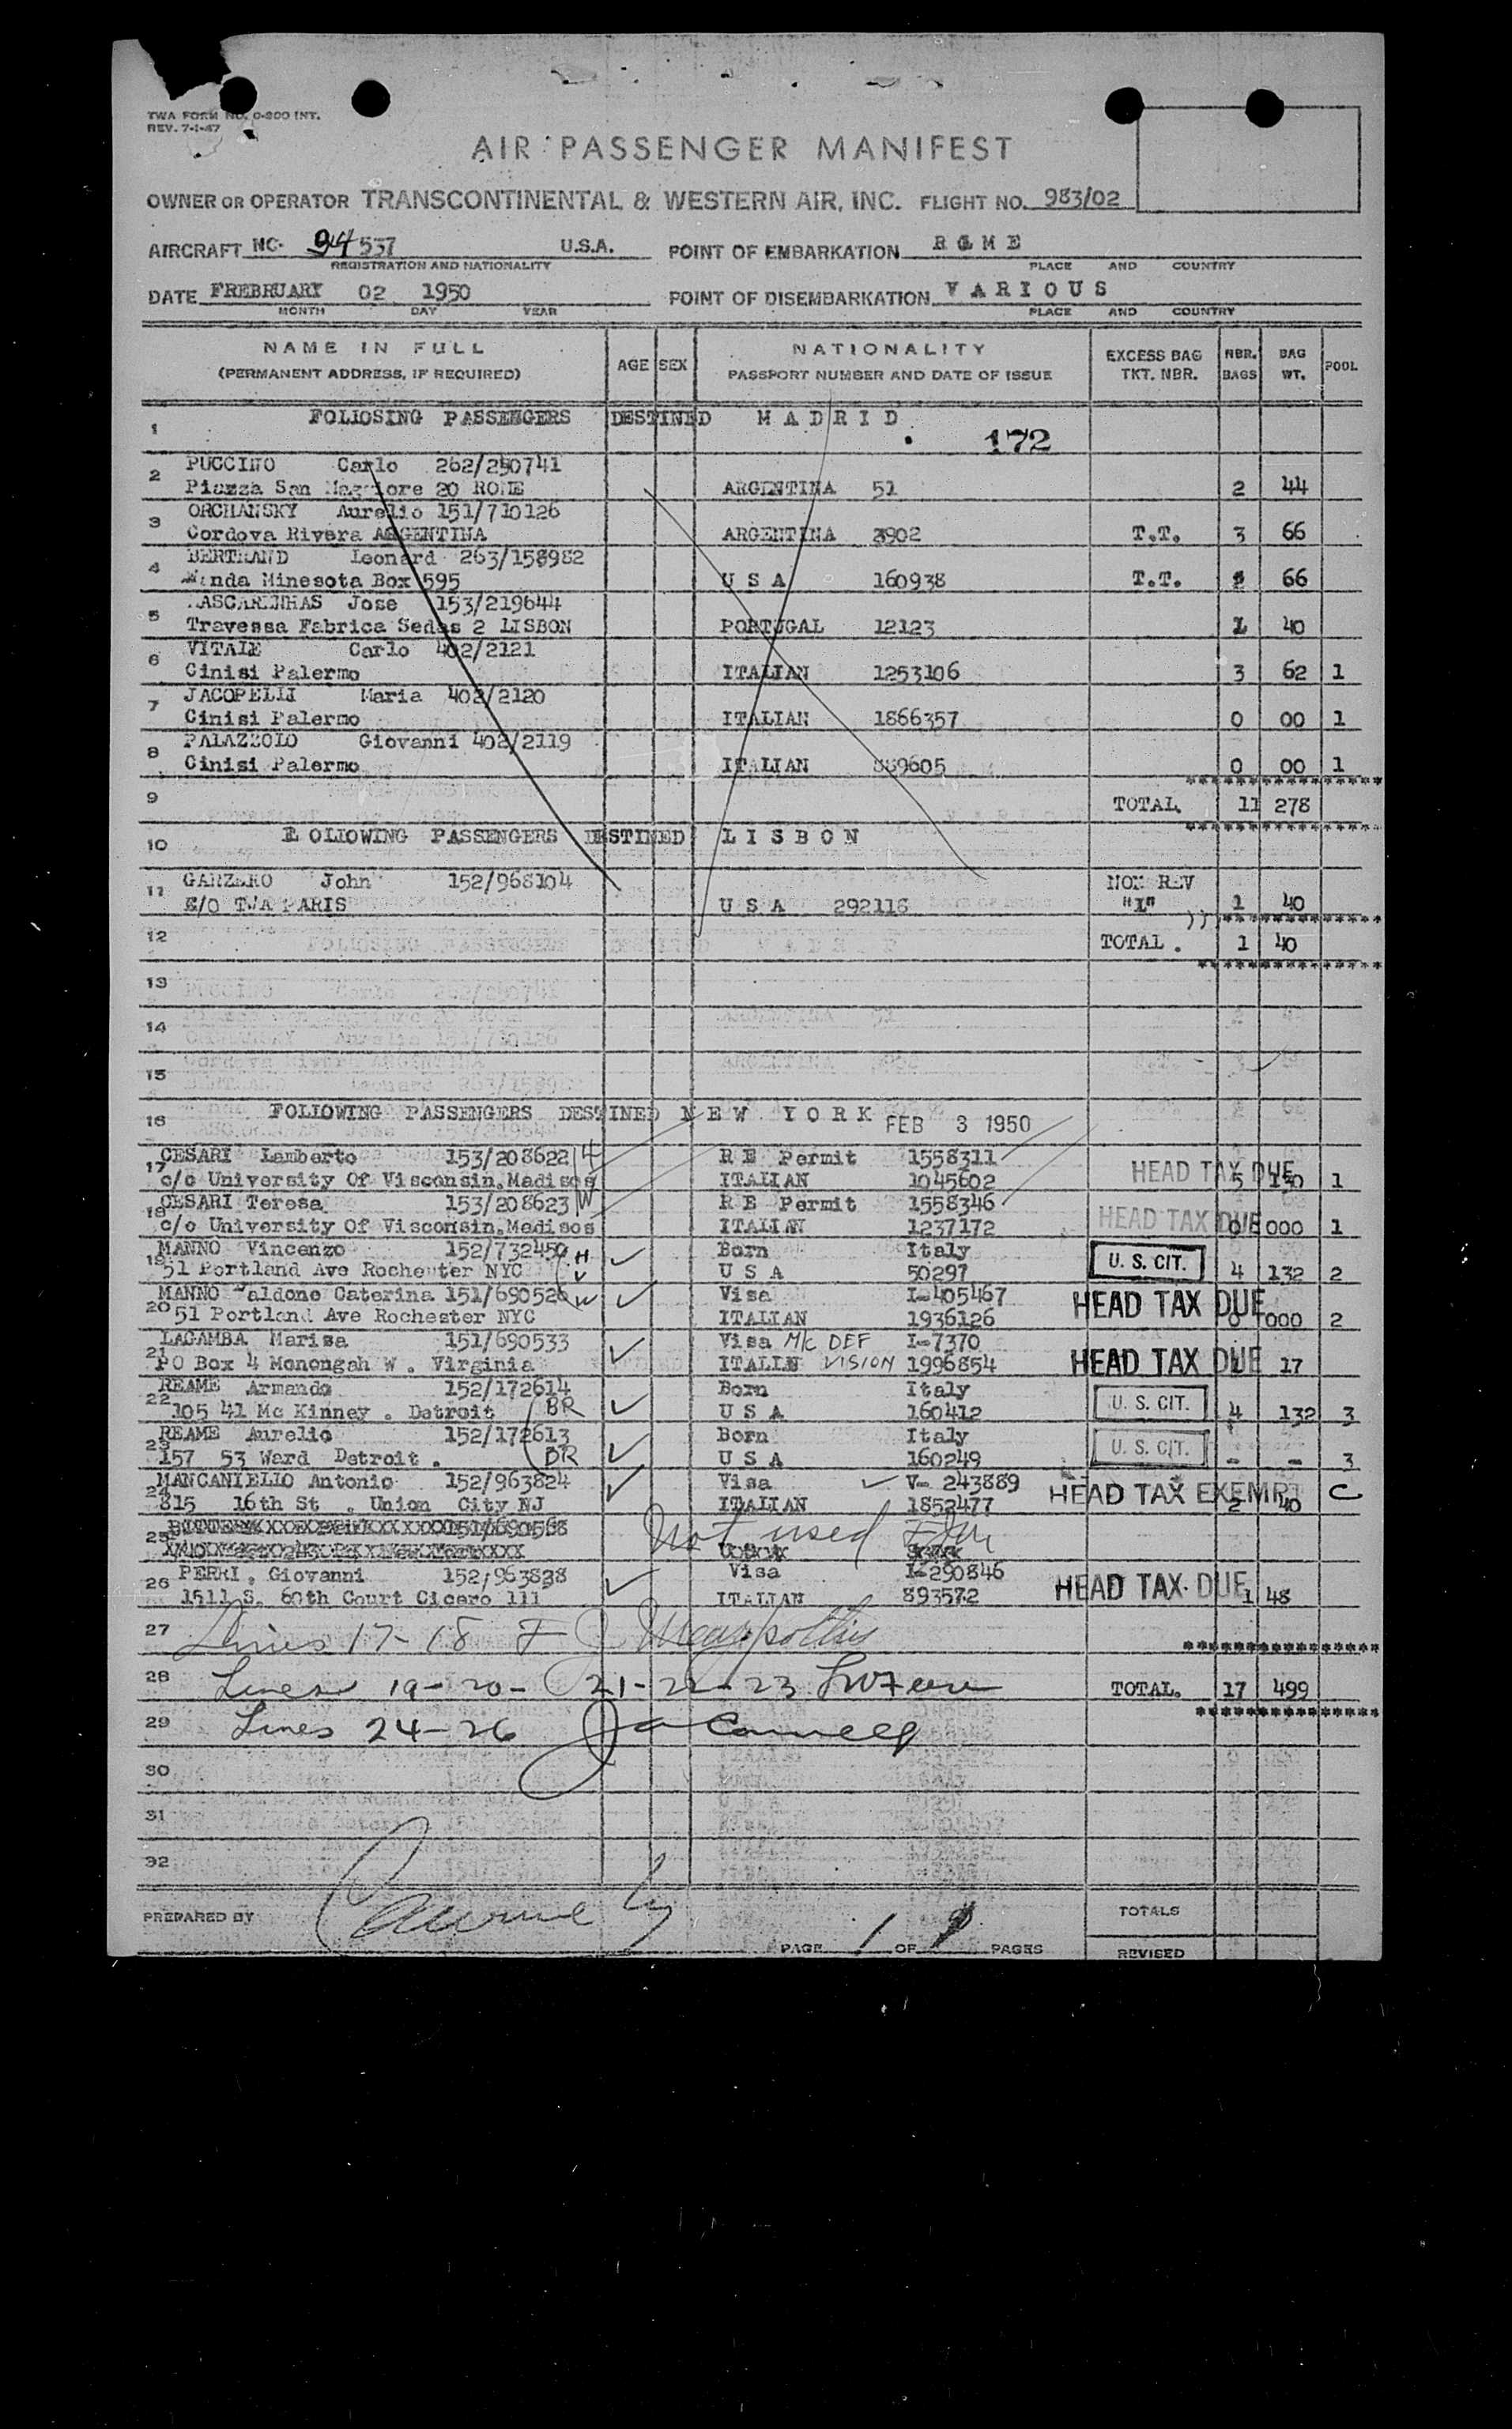 TWA FORM NO. 0-800 INT.
REV. 7-1-47
AIR PASSENGER MANIFEST
OWNER OR OPERATOR TRANSCONTINENTAL & WESTERN AIR, INC. FLIGHT NO. 983/02
AIRCRAFT NC- 94537 U.S.A. POINT OF EMBARKATION ROME
REGISTRATION AND NATIONALITY PLACE AND COUNTRY
DATE FREBRUARY 02 1950 POINT OF DISEMBARKATION VARIOUS
MONTH DAY YEAR PLACE AND COUNTRY
NAME IN FULL (PERMANENT ADDRESS, IF REQUIRED) AGE SEX NATIONALITY PASSPORT NUMBER AND DATE OF ISSUE EXCESS BAG TKT. NBR. NBR. BAGS BAG WT. POOL
1 FOLLOSING PASSENGERS DESTINED MADRID
172
2 PUCCINO Carlo 262/250741
Piazza San Maggiore 20 ROME ARGENTINA 51 2 44
3 ORCHANSKY Aurelio 151/710126
Cordova Rivera ARGENTINA ARGENTINA 3902 T.T. 3 66
4 BERTRAND Leonard 263/158982
Minesota Box 595 U S A 160938 T.T. 66
5 MASCARENHAS Jose 153/219644
Travessa Fabrica Sedas 2 LISBON PORTUGAL 12123 1 40
6 VITALE Carlo 402/2121
Cinisi Palermo ITALIAN 1253106 3 62 1
7 JACOPELLI Maria 402/2120
Cinisi Palermo ITALIAN 1866357 0 00 1
8 PALAZZOLO Giovanni 402/2119
Cinisi Palermo ITALIAN 889605 0 00 1
****************
9 TOTAL. 11 278
****************
10 FOLLOWING PASSENGERS DESTINED LISBON
11 GARZERO John 152/968104 NON REV
E/O TWA PARIS U S A 292118 "L" 1 40
12 TOTAL . 1 40
13
14
15
16 FOLLOWING PASSENGERS DESTINED NEW YORK FEB 3 1950
17 CESARI Lamberto 153/208622 H RE Permit 1558311 HEAD TAX DUE
c/o University Of Visconsin.Madisos ITALIAN 1045602 5 130 1
18 CESARI Teresa 153/208623 W RE Permit 1558346 HEAD TAX DUE
c/o University Of Visconsin.Madisos ITALIAN 1237172 0 000 1
19 MANNO Vincenzo 152/732450 H Born Italy U. S. CIT.
51 Portland Ave Rochester NYC U S A 50297 4 132 2
20 MANNO Valdone Caterina 151/690526 W Visa I-405467 HEAD TAX DUE
51 Portland Ave Rochester NYC ITALIAN 1936126 0 000 2
21 LACAMBA Marisa 151/690533 Visa M/c DEF I-7370 HEAD TAX DUE
PO Box 4 Monongah W . Virginia ITALIN VISION 1996854 17
22 REAME Armando 152/172614 BR Born Italy U. S. CIT.
105 41 Mc Kinney . Detroit U S A 160412 4 132 3
23 REAME Aurelio 152/172613 BR Born Italy U. S. CIT.
157 53 Ward Detroit . U S A 160249 - - 3
24 MANCANIELLO Antonio 152/963824 Visa V- 243889 HEAD TAX EXEMPT C
815 16th St . Union City NJ ITALIAN 1852477 2 40
25 Not used
26 PERRI . Giovanni 152/963838 Visa I-290846 HEAD TAX DUE
1511 S. 60th Court Cicero 111 ITALIAN 893572 1 48
27 Lines 17-18
28 Lines 19-20- 21-22-23 TOTAL. 17 499
29 Lines 24-26
30
31
32
PREPARED BY TOTALS
PAGE 1 OF 1 PAGES REVISED